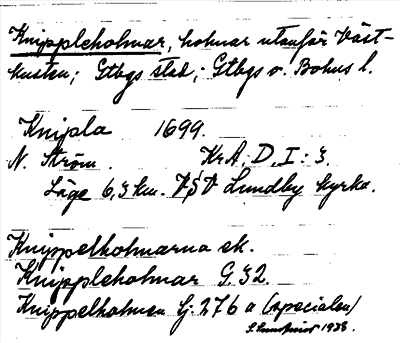 Knippleholmar, holmar utanför Väst-
kusten; Gtbgs stad; Gtbgs o. Bohus l.
Knipla 1699.
N. Ström. KrA, D, I: 3.
Läge 6,3 km. VSV Lundby kyrka.
Knippelholmarna ek.
Knippleholmar G. 32.
Knippelholmen Lj. 276 a (specialen)
1938.